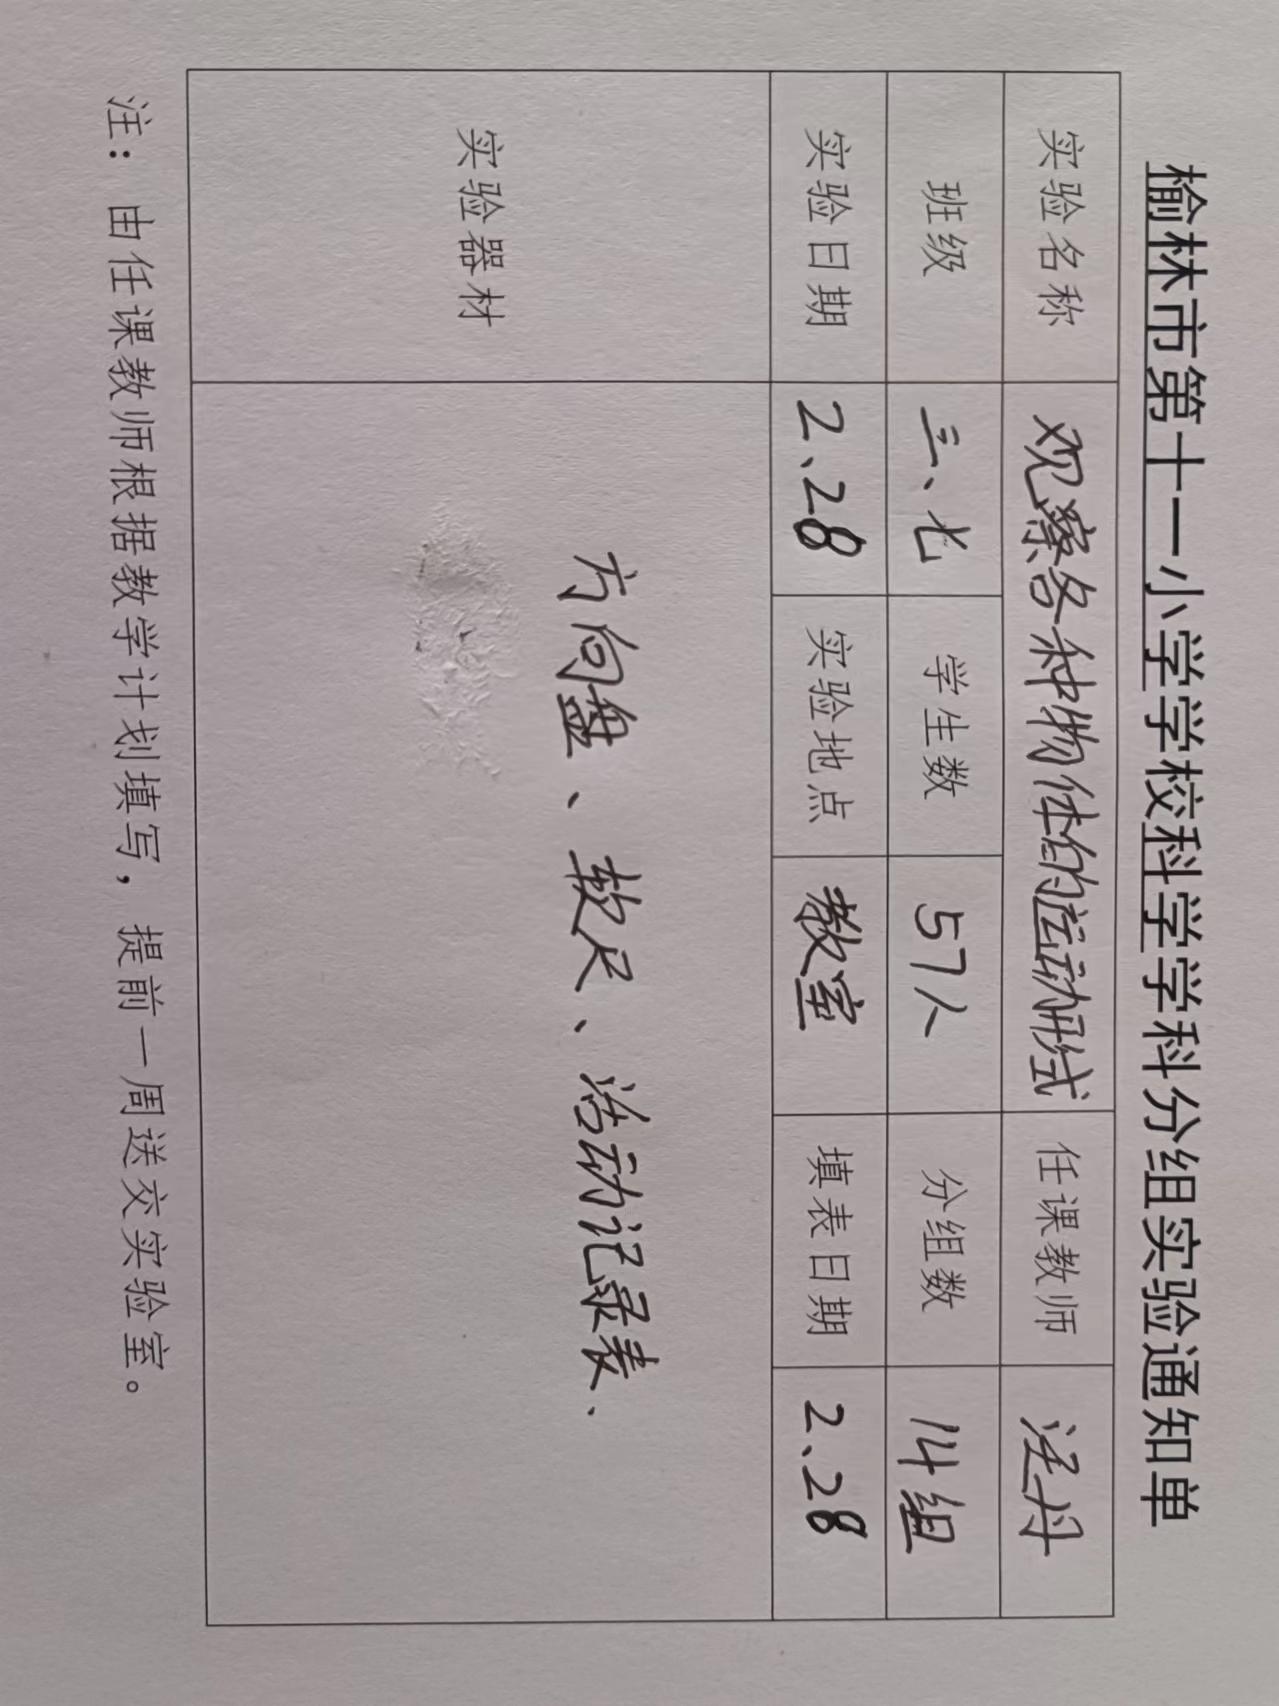 榆林市第十一小学学校科学学科分组实验通知单
实验名称 观察各种物体的运动形式 任课教师
班级 三、七 学生数 57人 分组数 14组
实验日期 2、28 实验地点 教室 填表日期 2、28
实验器材 方向盘、软尺、活动记录表、
注：由任课教师根据教学计划填写，提前一周送交实验室。